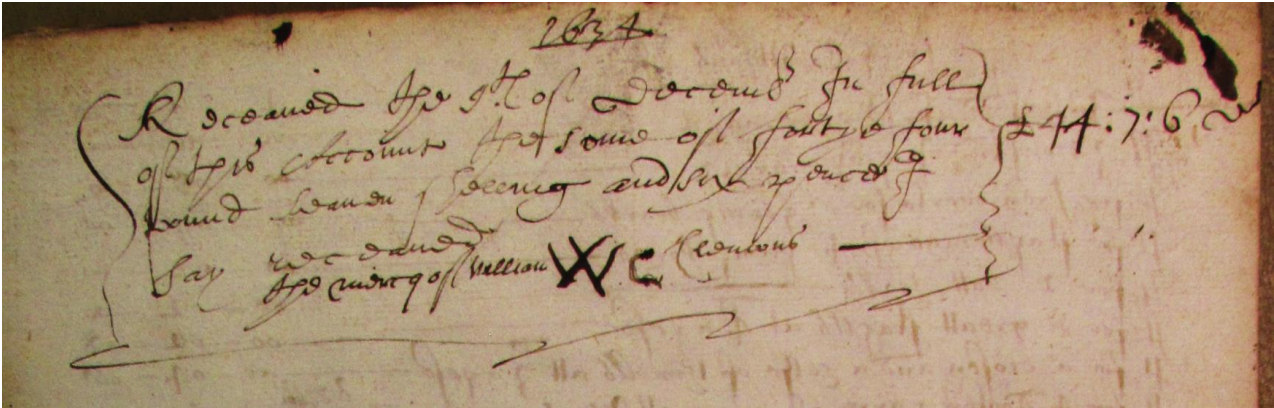 1634
Receaved the 9th of Decemb In full
of this Accounte the some of fortye four
pound seaven shelling and six pence £ 44 : 7 : 6
say receaved
the merck of William W C Clemons